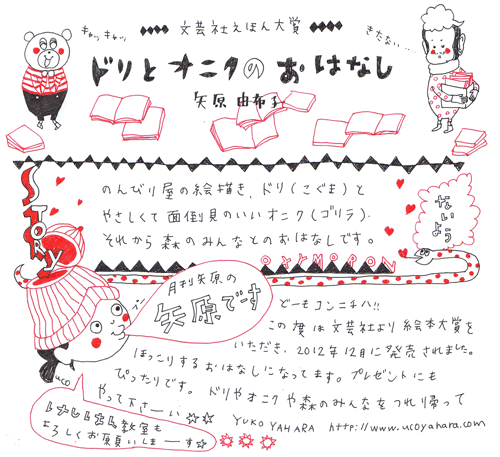 キャッキャッ
文芸社えほん大賞
きたない....
ドリとオニクのおはなし
矢原由布子
STORY
のんびり屋の絵描き、ドリ(こぐま)と
やさしくて面倒見のいいオニク(ゴリラ).
それから森のみんなとのおはなしです。
ないよう
OXYMORON
月刊矢原の
矢原でーす
どーもコンニチハ!!
この度は文芸社より絵本大賞を
いただき、2012年12月に発売されました。
ほっこりするおはなしになってます。プレゼントにも
ぴったりです。 ドリやオニクや森のみんなをつれて帰って
やって下さーい☆☆
YUKO YAHARA http://www.ucoyahara.com
uco
教室も
よろしくお願いしまーす☆